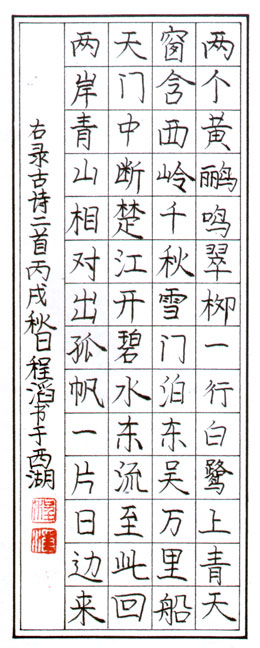 两个黄鹂鸣翠柳一行白鹭上青天
窗含西岭千秋雪门泊东吴万里船
天门中断楚江开碧水东流至此回
两岸青山相对出孤帆一片日边来
右录古诗二首丙戌秋日程滔书于西湖